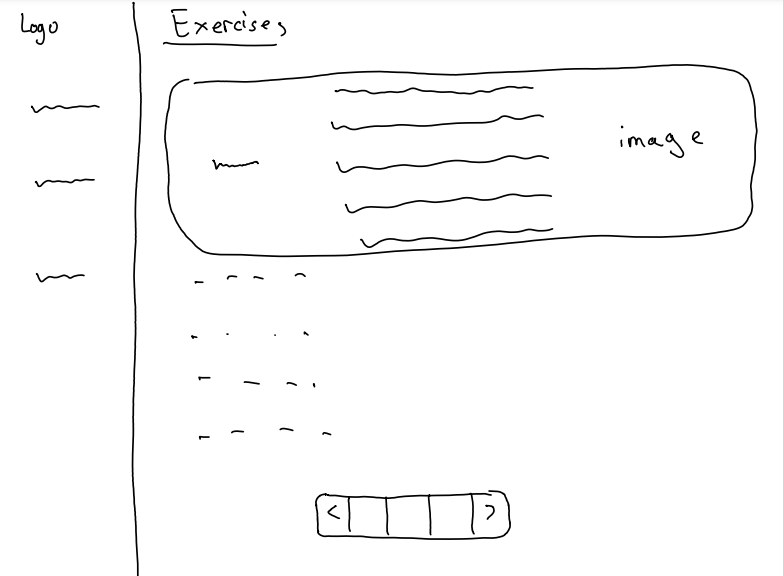 Logo
Exercises
image
< >